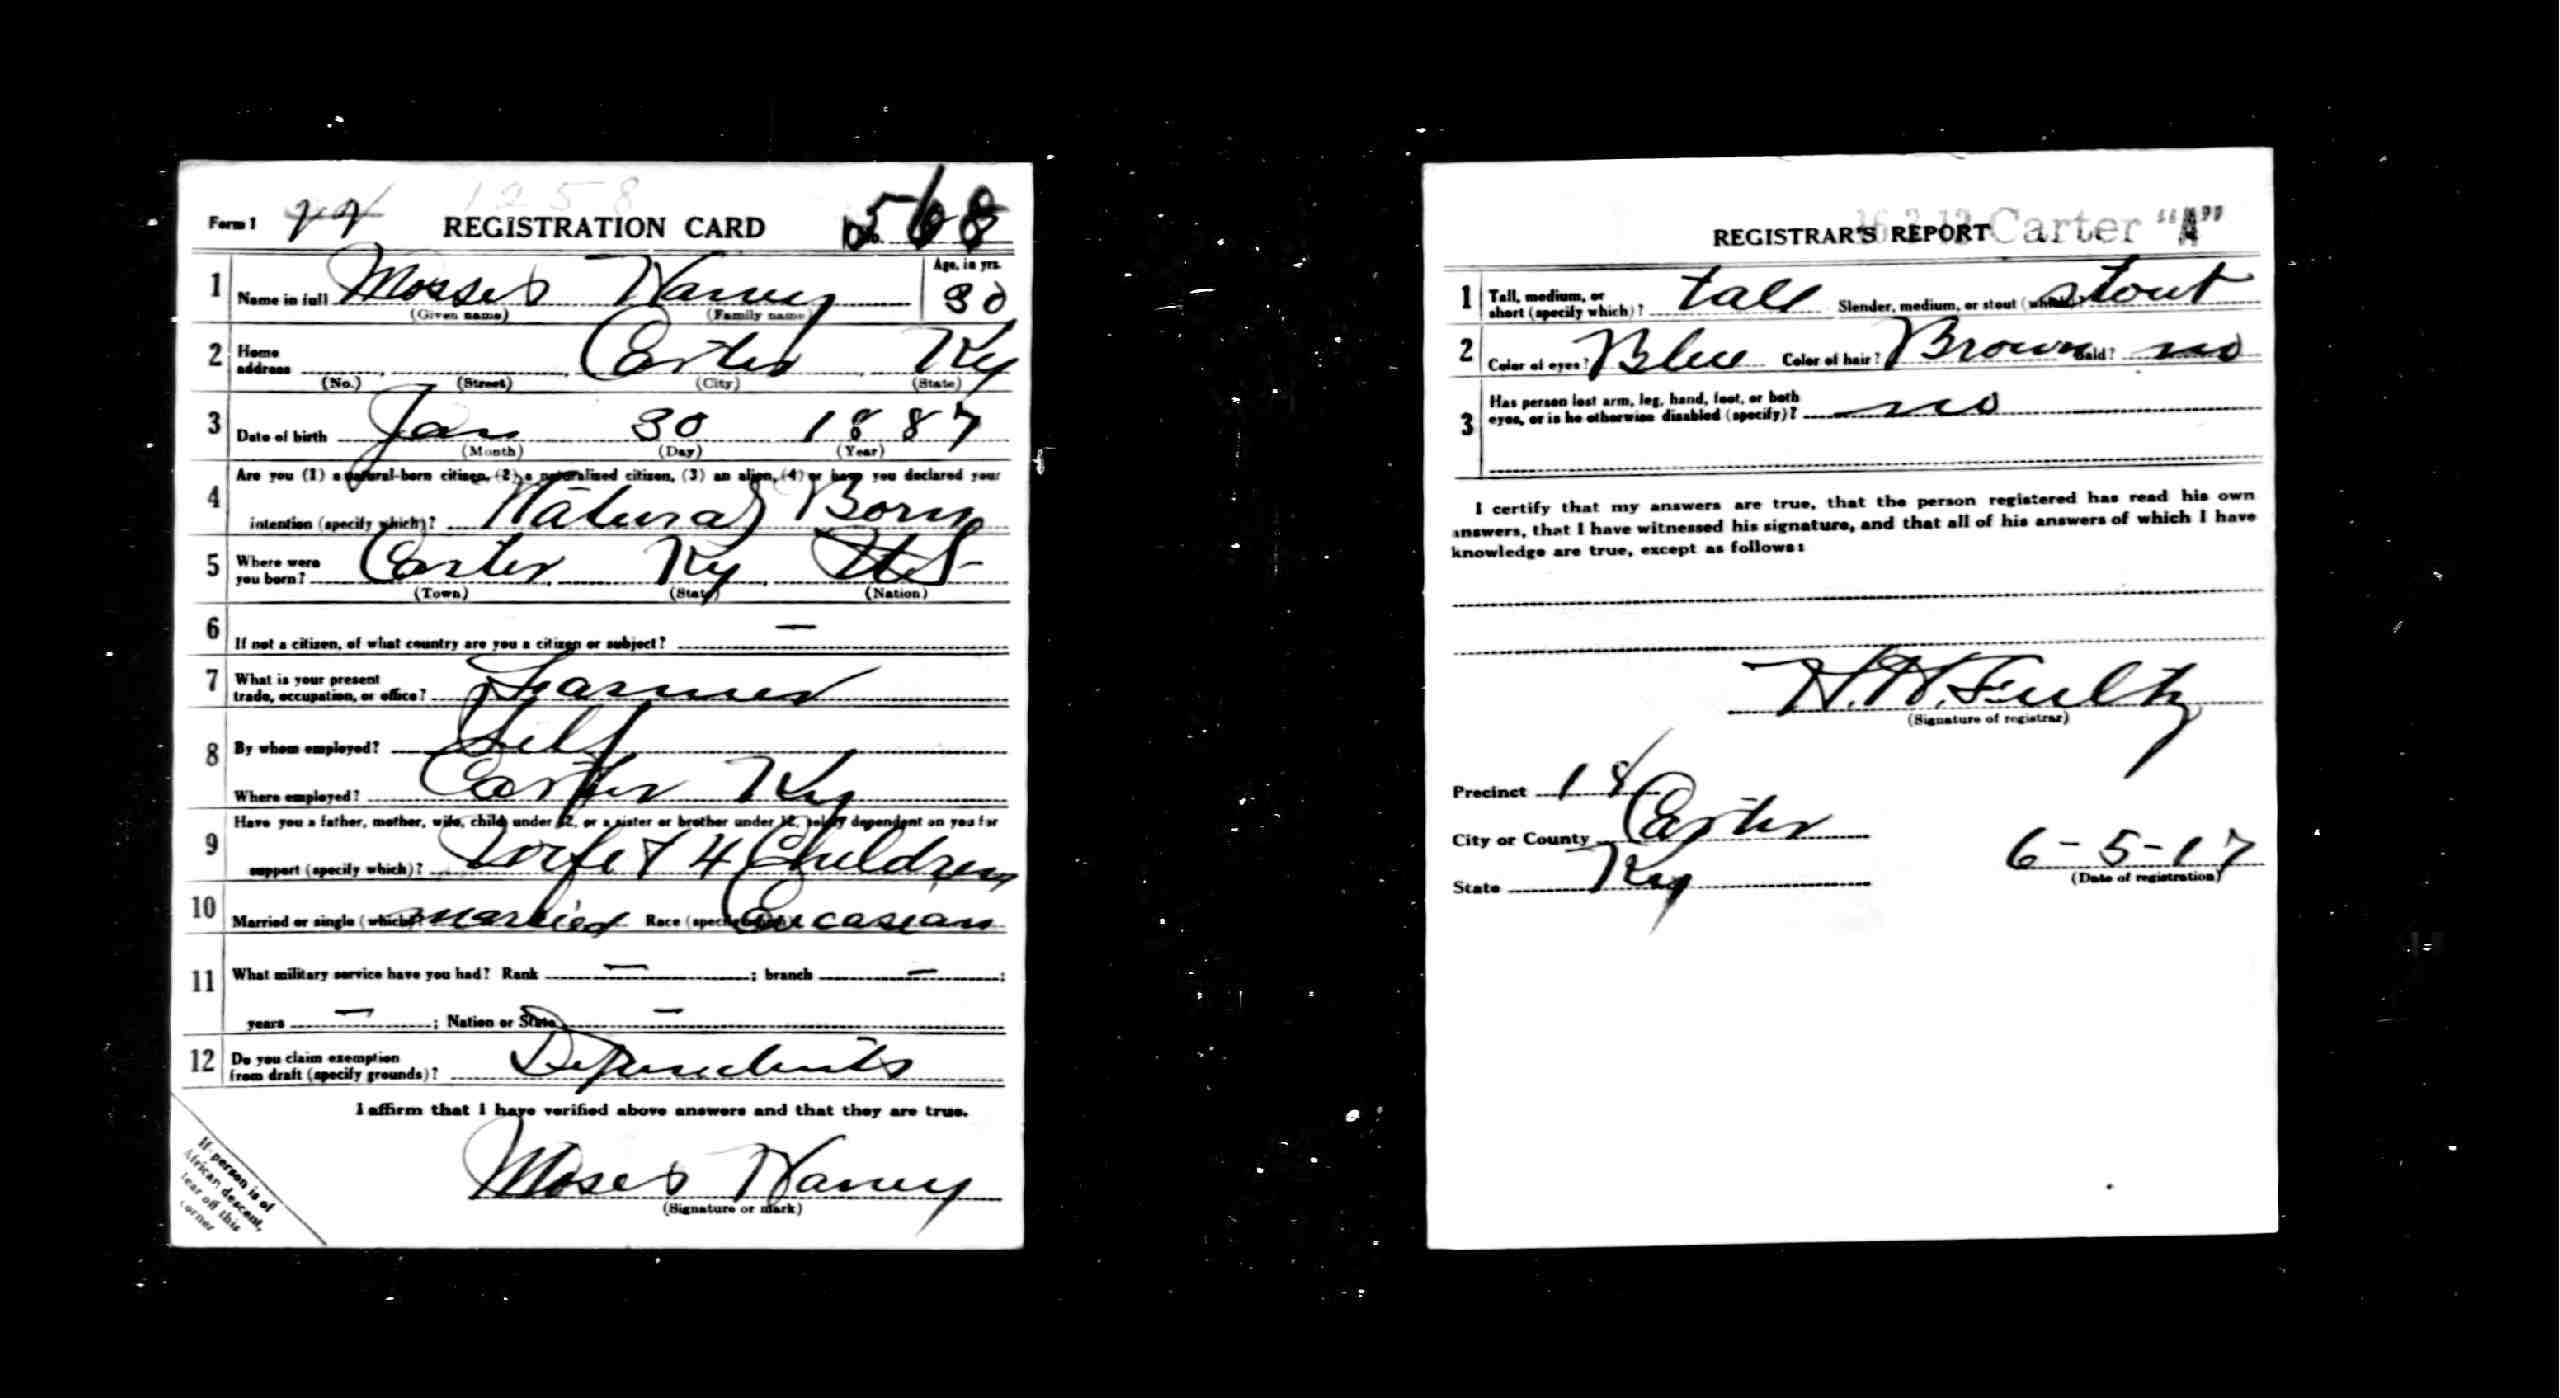 1258
Form 1 REGISTRATION CARD No. 568
1 Name in full Mosses Harvey Age, in yrs. 30
(Given name) (Family name)
2 Home address Carter Ky
(No.) (Street) (City) (State)
3 Date of birth Jan 30 1887
(Month) (Day) (Year)
4 Are you (1) a natural-born citizen, (2) a naturalized citizen, (3) an alien, (4) or have you declared your
intention (specify which)? Natural Born
5 Where were you born? Carter Ky U.S.
(Town) (State) (Nation)
6 If not a citizen, of what country are you a citizen or subject? —
7 What is your present
trade, occupation, or office? Farmer
8 By whom employed? Self
Where employed? Carter Ky
9 Have you a father, mother, wife, child under 12, or a sister or brother under 12, solely dependent on you for
support (specify which)? Wife & 4 Children
10 Married or single (which)? married Race (specify which)? Caucasian
11 What military service have you had? Rank — ; branch — ;
years — ; Nation or State —
12 Do you claim exemption
from draft (specify grounds)? Dependents
I affirm that I have verified above answers and that they are true.
Moses Harvey
(Signature or mark)
If person is of
African descent,
tear off this
corner
REGISTRAR'S REPORT Carter "A"
1 Tall, medium, or
short (specify which)? tall Slender, medium, or stout (which)? stout
2 Color of eyes? Blue Color of hair? Brown Bald? no
3 Has person lost arm, leg, hand, foot, or both
eyes, or is he otherwise disabled (specify)? no
I certify that my answers are true, that the person registered has read his own
answers, that I have witnessed his signature, and that all of his answers of which I have
knowledge are true, except as follows:
H.H. Fultz
(Signature of registrar)
Precinct 18
City or County Carter
State Ky
6-5-17
(Date of registration)